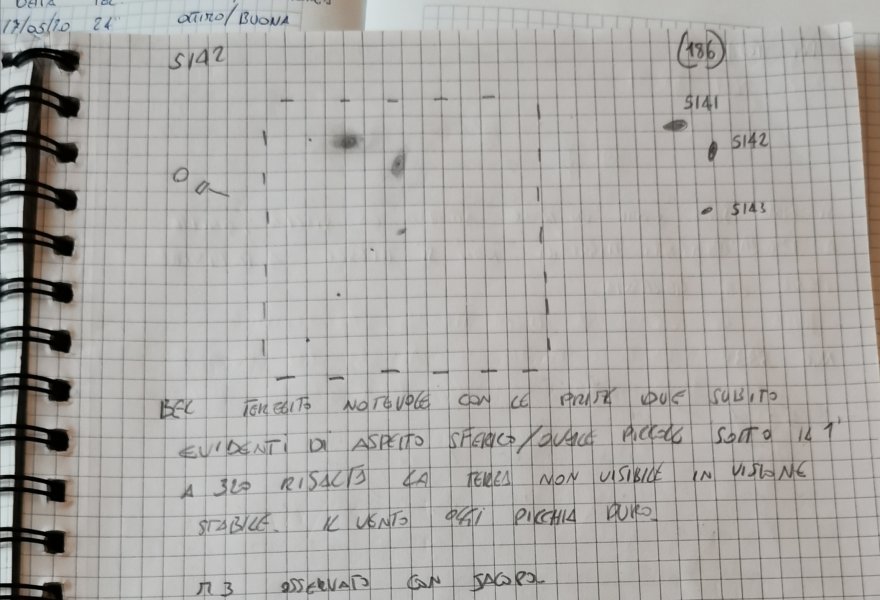 17/05/20 21 OTTIMO/BUONA
5142
186
5141
5142
5143
BEL TERZETTO NOTEVOLE CON LE PRIME DUE SUBITO
EVIDENTI DI ASPETTO SFERICO/OVALE PICCOLE SOTTO IL 1'
A 320 RISALTA LA TERZA NON VISIBILE IN VISIONE
STABILE. IL VENTO OGGI PICCHIA DURO
M3 OSSERVATO CON JACOPO